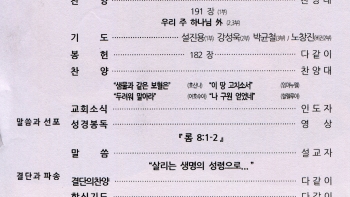 찬 양 찬 양 대
191 장 (1부)
우리 주 하나님 외 (2,3부)
기 도 설진용(1부) 강성욱(2부) 박균철(3부) / 노창진
봉 헌 182 장 다 같 이
찬 양 찬 양 대
"샘물과 같은 보혈은" (호산나) "이 땅 고치소서" (임마누엘)
"두려워 말아라" (여호수아) "나 구원 얻었네" (할렐루야)
교회소식 인 도 자
말씀과 선포 성경봉독 영 상
『롬 8:1-2』
말 씀 설 교 자
"살리는 생명의 성령으로..."
결단과 파송 결단의찬양 다 같 이
합심기도 다 같 이